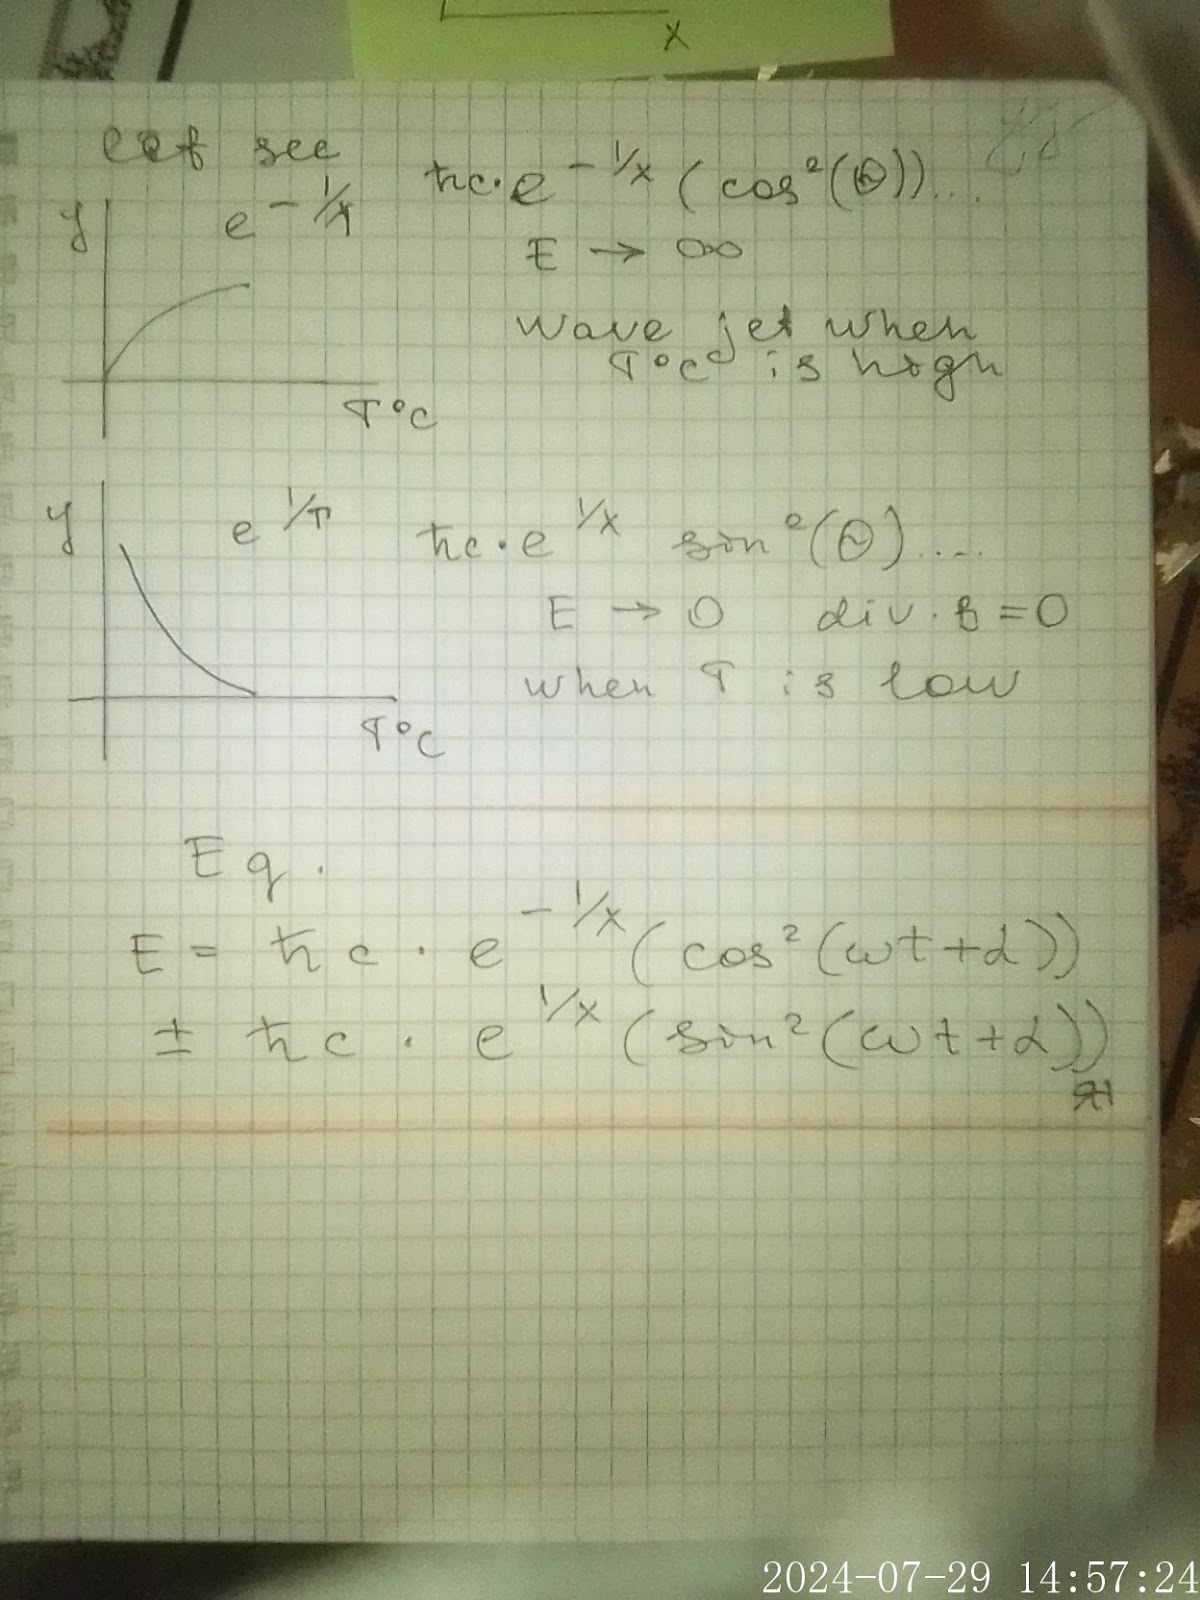 x
let see
ħc·e^{-1/x} (cos²(θ))....
y
e^{-1/T}
E → ∞
wave jet when
T°C is high
T°C
y
e^{1/T}
ħc·e^{1/x} sin²(θ)....
E → 0 div. B = 0
when T is low
T°C
Eq.
E = ħc · e^{-1/x} (cos²(ωt+α))
± ħc · e^{1/x} (sin²(ωt+α))
2024-07-29 14:57:24